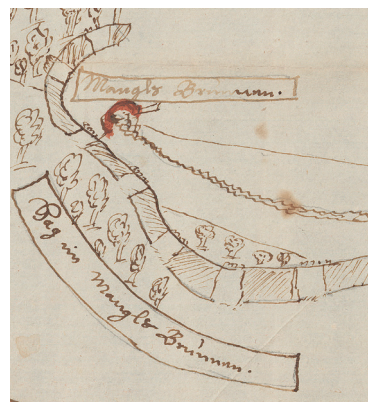 Mangls Brünnen.
Hag im Mangls Brünnen.